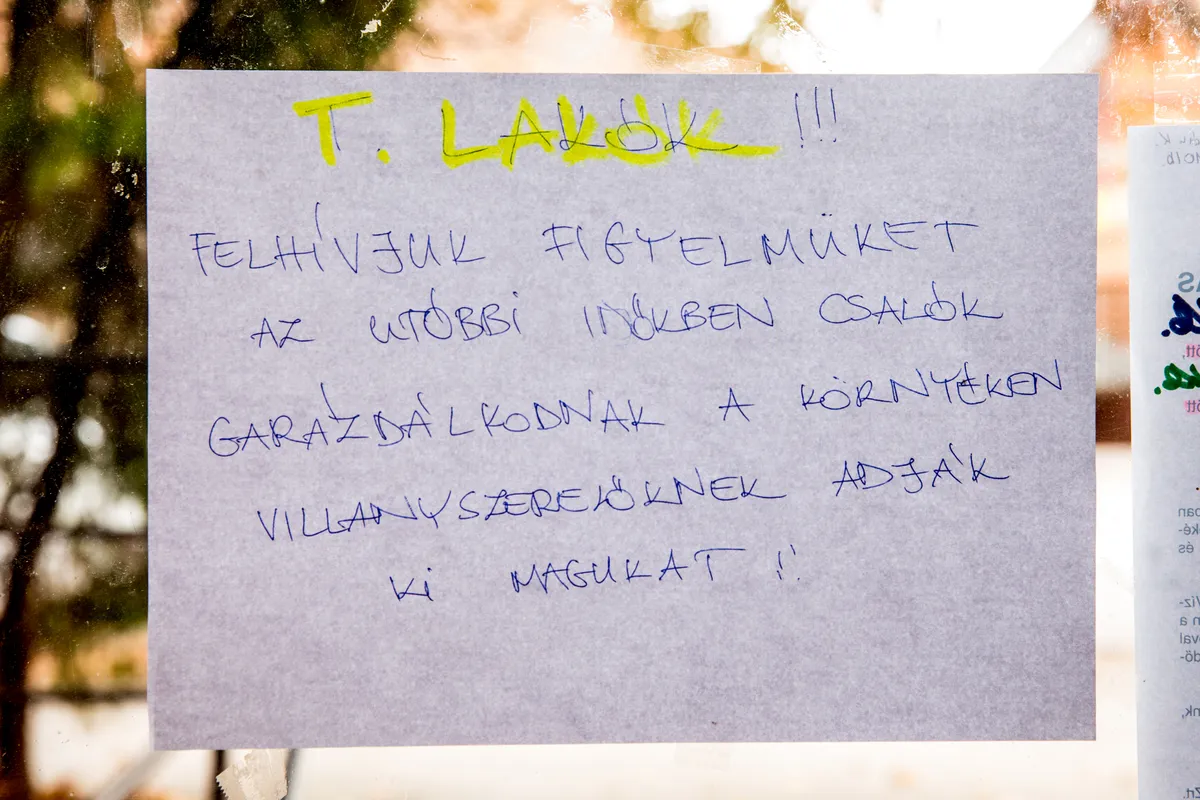 T. LAKÓK !!!
FELHÍVJUK FIGYELMÜKET
AZ UTÓBBI IDŐKBEN CSALÓK
GARÁZDÁLKODNAK A KÖRNYÉKEN
VILLANYSZERELŐKNEK ADJÁK
KI MAGUKAT !!